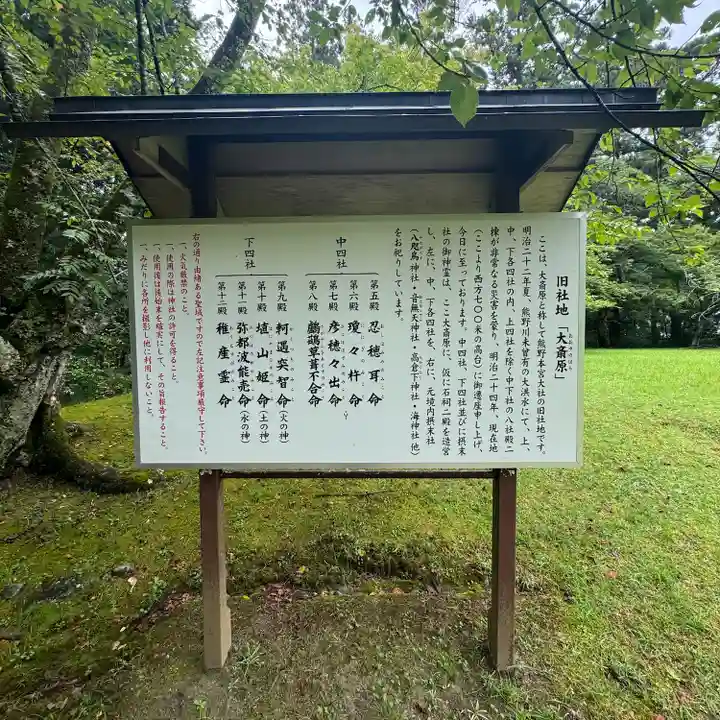 旧社地「大斎原」
ここは、大斎原と称して熊野本宮大社の旧社地です。
明治二十二年夏、熊野川未曽有の大洪水にて、上、
中、下各四社の内、上四社を除く中下社の八社殿二
棟が非常なる災害を蒙り、明治二十四年、現在地
(ここより西方七〇〇米の高台)に御遷座申し上げ、
今日に至っております。中四社、下四社並びに摂末
社の御神霊は、ここ大斎原に、仮に石祠二殿を造営
し、左に、中、下各四社を、右に、元境内摂末社
(八咫烏神社・音無天神社・高倉下神社・海神社他)
をお祀りしています。
中四社
第五殿 忍穂耳命
第六殿 瓊々杵命
第七殿 彦穂々出命
第八殿 鸕鶿草葺不合命
下四社
第九殿 軻遇突智命(火の神)
第十殿 埴山姫命(土の神)
第十一殿 弥都波能売命(水の神)
第十二殿 稚産霊命
右の通り由緒ある聖域ですので左記注意事項厳守して下さい。
一、火気厳禁のこと。
一、使用の際は神社の許可を得ること。
一、使用後は後始末を確実にして、その旨報告すること。
一、みだりに各所を撮影し他に利用しないこと。